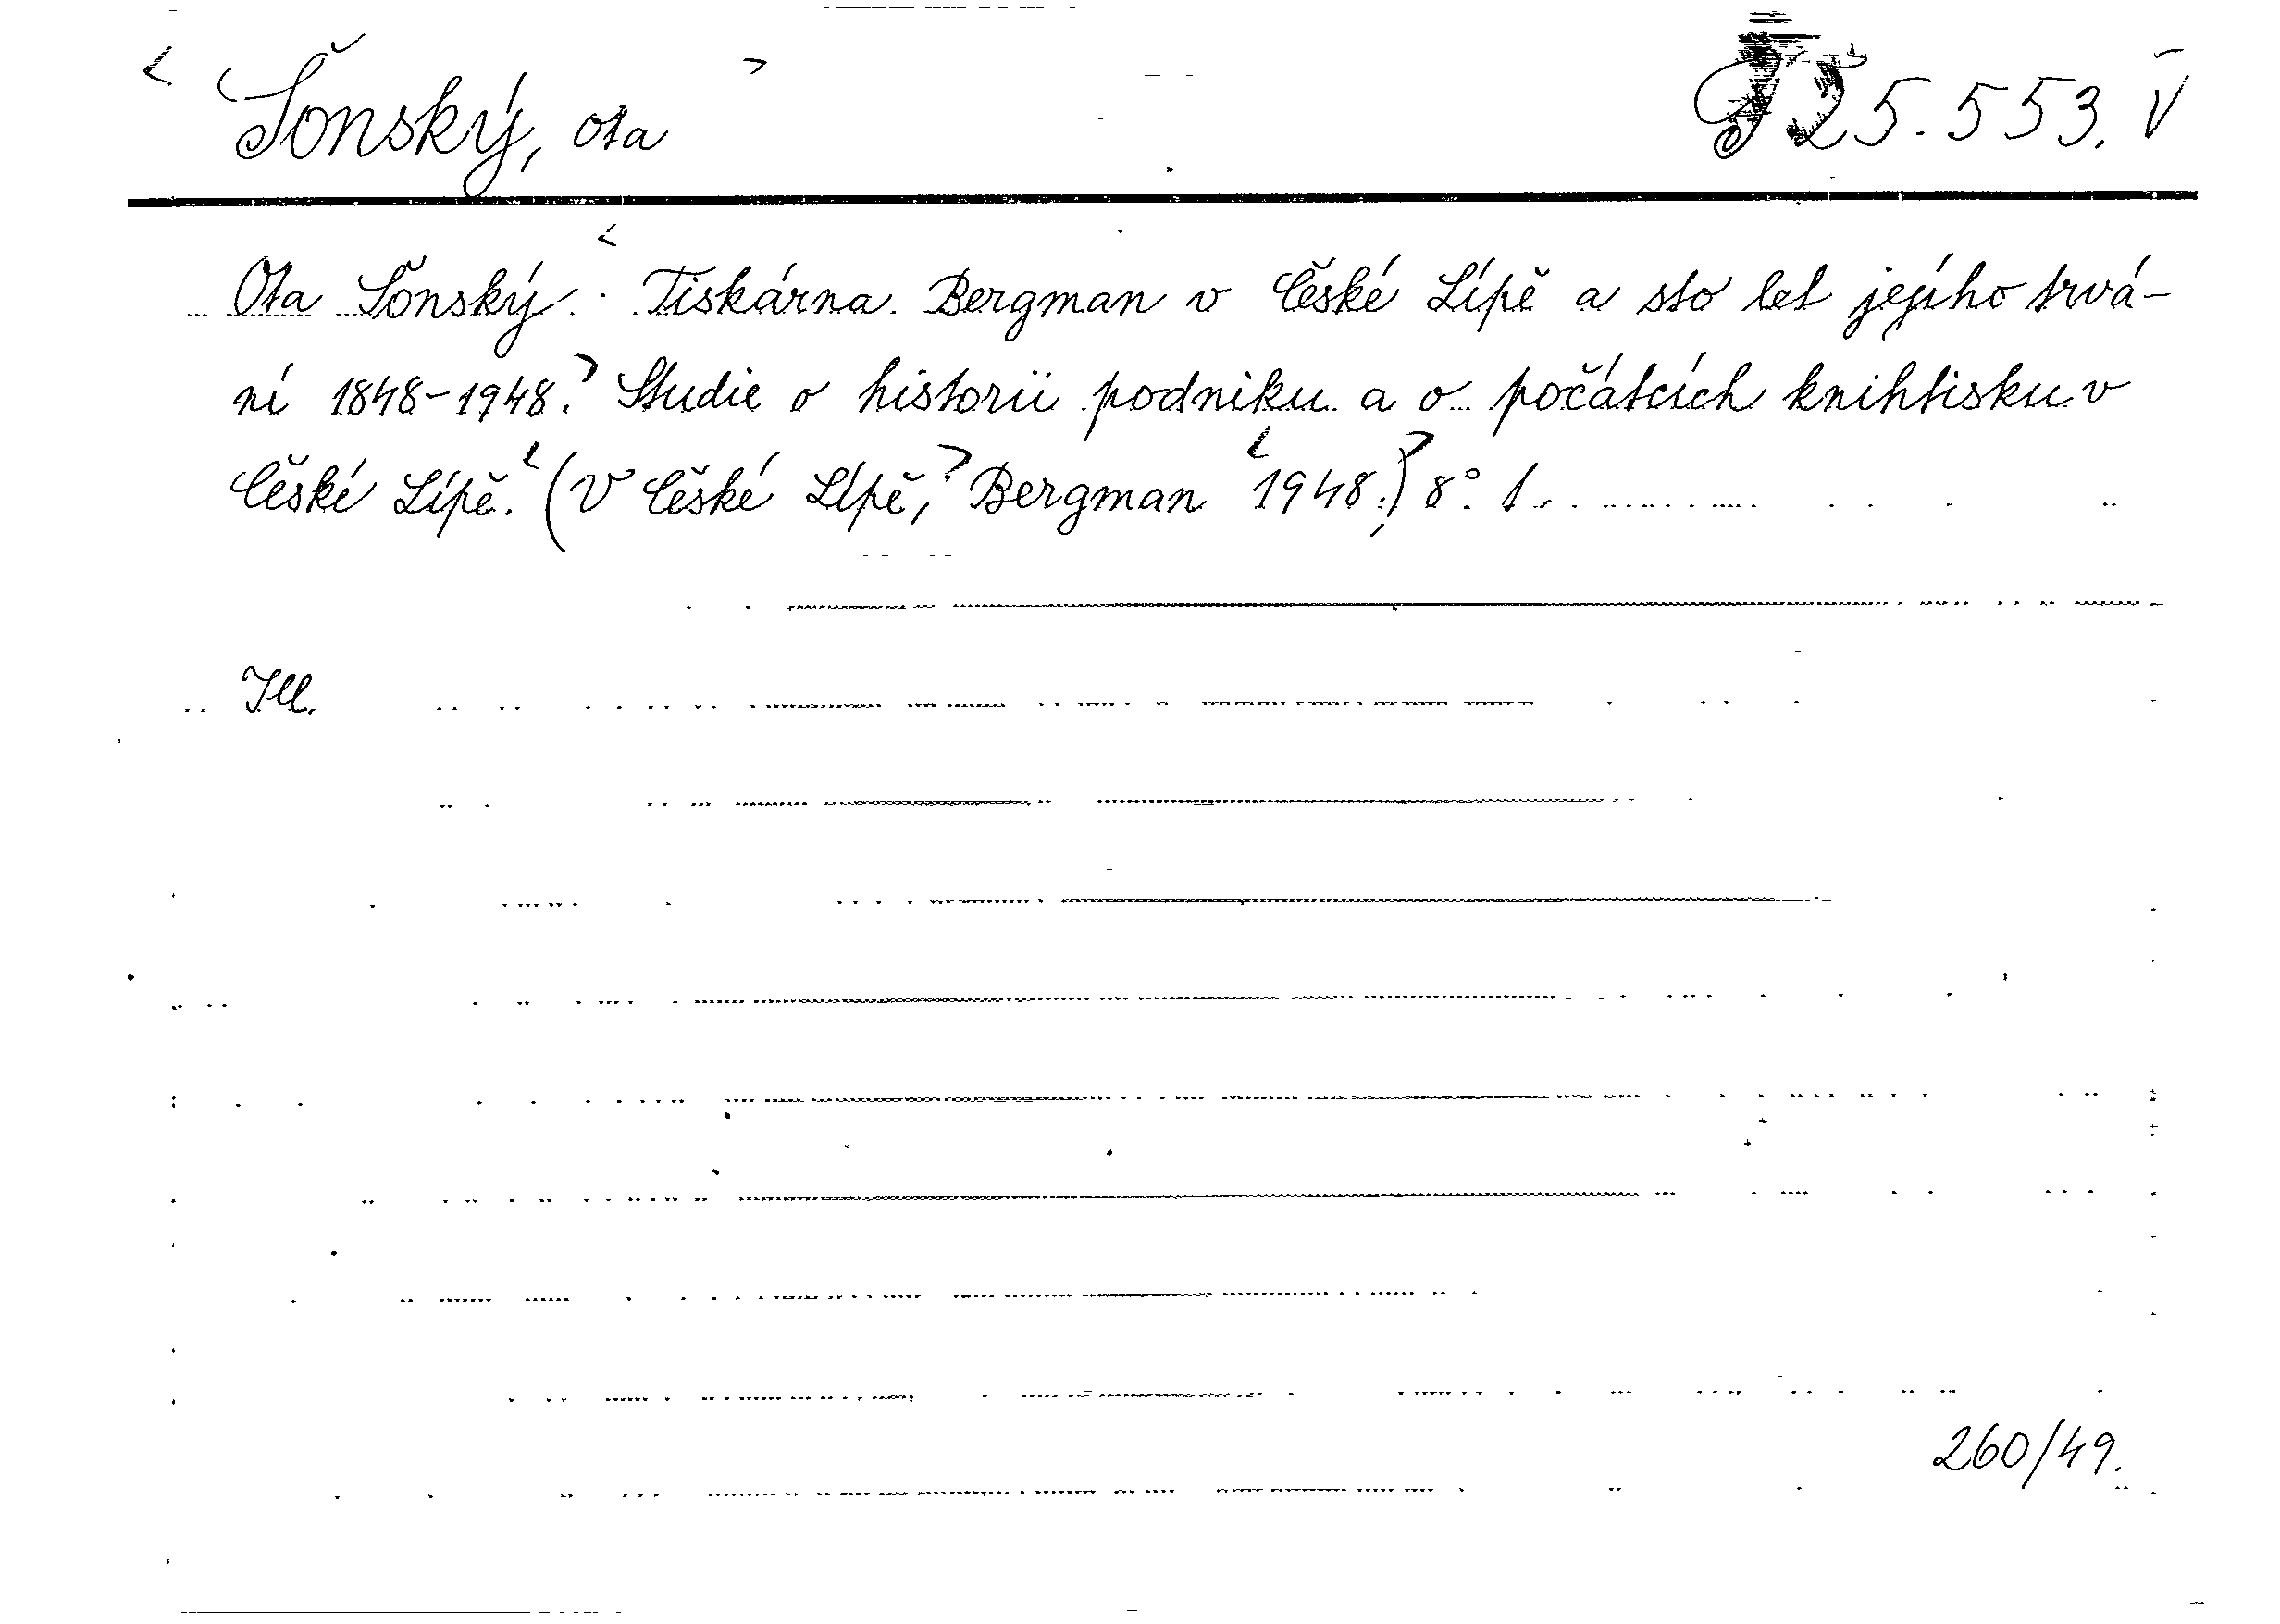 < Šonský, Ota > 25.553. V
Ota Šonský: < Tiskárna Bergman v České Lípě a sto let jejího trvá-
ní 1848-1948.> Studie o historii podniku a o počátcích knihtisku v
České Lípě. < (V České Lípě,> Bergman < 1948.)> 8°.
Ill.
260/49.